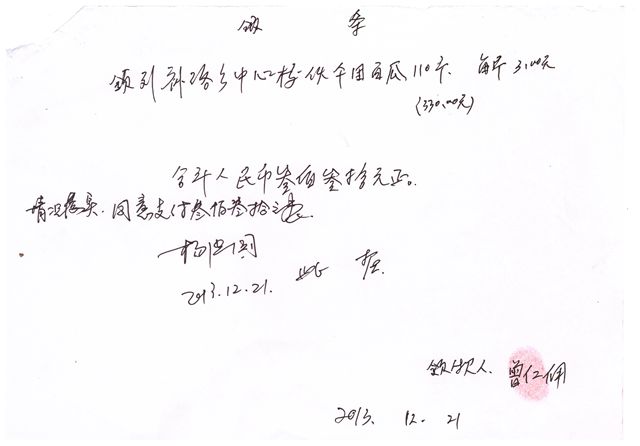 领 条
领到补洛乡中心校伙午用南瓜110斤. 每斤3.00元
(330.00元)
合计人民币叁佰叁拾元正。
情况属实.同意支付叁佰叁拾元
2013.12.21. 此 据.
领款人. 曾仁佣
2013. 12. 21